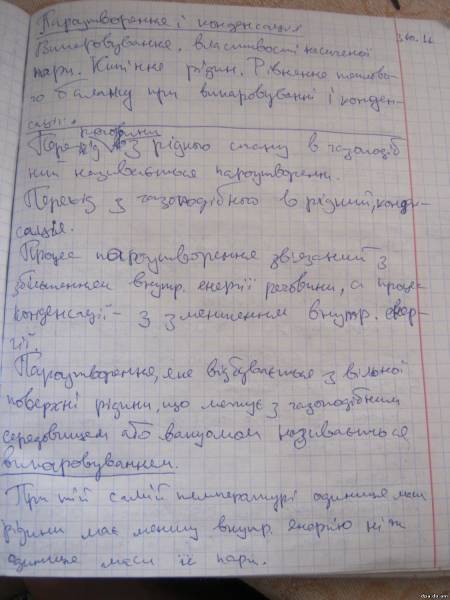 Пароутворення і конденсація
Випаровування. Властивості насиченої
пари. Кипіння рідин. Рівняння теплово-
го балансу при випаровуванні і конден-
сації.
речовини
Перехід з рідкого стану в газоподіб
ний називається пароутворення.
Перехід з газоподібного в рідкий, конден-
сація.
Процес пароутворення звязаний з
збільшенням внутр. енергії речовини, а процес
конденсації - з зменшенням внутр. енер-
гії.
Пароутворення, яке відбувається з вільної
поверхні рідини, що межує з газоподібним
середовищем або вакуумом називається
випаровуванням.
При тій самій температурі одиниця маси
рідини має меншу внутр. енергію ніж
одиниця маси її пари.
dpa.da.am